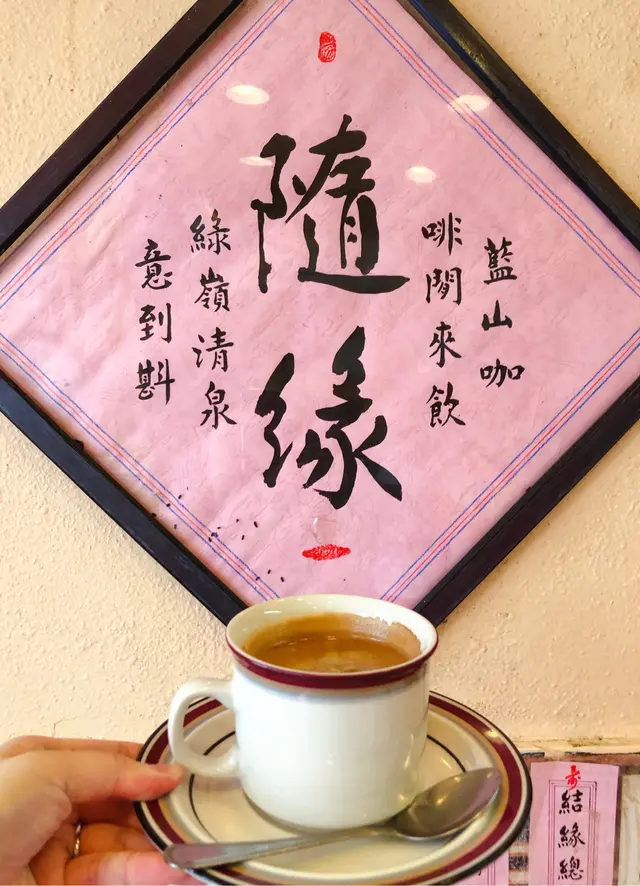 藍山咖
啡閒來飲
隨緣
綠嶺清泉
意到斟
結緣總